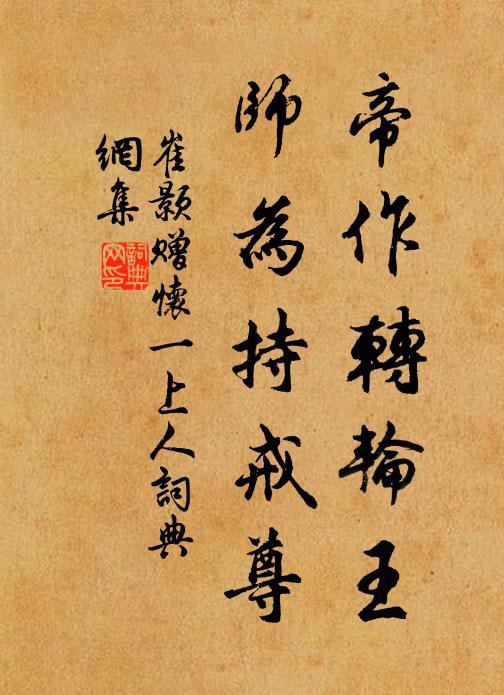 帝作轉輪王
師為持戒尊
崔顥赠懷一上人詞典
網集
詞典
网印